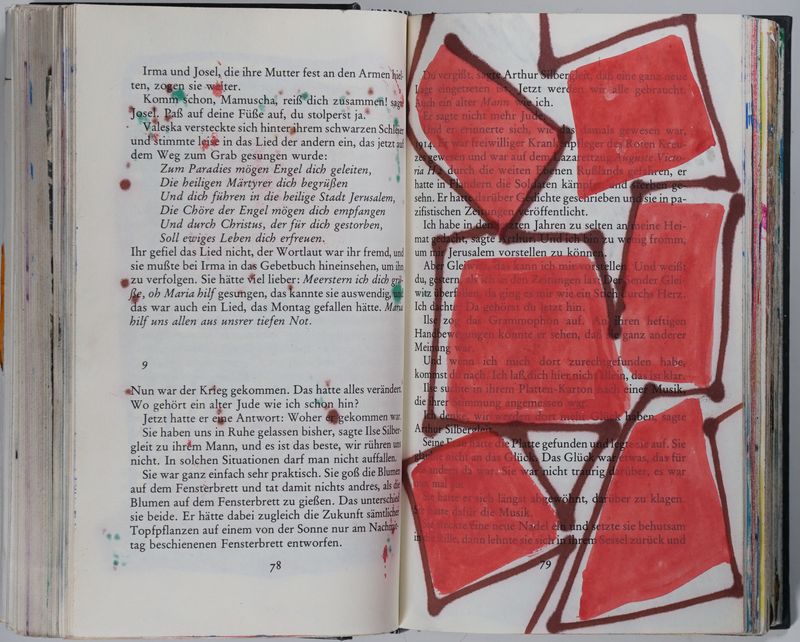 Irma und Josel, die ihre Mutter fest an den Armen hiel-
ten, zogen sie weiter.
Komm schon, Mamuscha, reiß dich zusammen! sagte
Josel. Paß auf deine Füße auf, du stolperst ja.
Valeska versteckte sich hinter ihrem schwarzen Schleier
und stimmte leise in das Lied der andern ein, das jetzt auf
dem Weg zum Grab gesungen wurde:
Zum Paradies mögen Engel dich geleiten,
Die heiligen Märtyrer dich begrüßen
Und dich führen in die heilige Stadt Jerusalem,
Die Chöre der Engel mögen dich empfangen
Und durch Christus, der für dich gestorben,
Soll ewiges Leben dich erfreuen.
Ihr gefiel das Lied nicht, der Wortlaut war ihr fremd, und
sie mußte bei Irma in das Gebetbuch hineinsehen, um ihn
zu verfolgen. Sie hätte viel lieber: Meerstern ich dich grü-
ße, oh Maria hilf gesungen, das kannte sie auswendig, und
das war auch ein Lied, das Montag gefallen hätte. Maria
hilf uns allen aus unsrer tiefen Not.
9
Nun war der Krieg gekommen. Das hatte alles verändert.
Wo gehört ein alter Jude wie ich schon hin?
Jetzt hatte er eine Antwort: Woher er gekommen war.
Sie haben uns in Ruhe gelassen bisher, sagte Ilse Silber-
gleit zu ihrem Mann, und es ist das beste, wir rühren uns
nicht. In solchen Situationen darf man nicht auffallen.
Sie war ganz einfach sehr praktisch. Sie goß die Blumen
auf dem Fensterbrett und tat damit nichts andres, als die
Blumen auf dem Fensterbrett zu gießen. Das unterschied
sie beide. Er hätte dabei zugleich die Zukunft sämtlicher
Topfpflanzen auf einem von der Sonne nur am Nachmit-
tag beschienenen Fensterbrett entworfen.
78
Du vergißt, sagte Arthur Silbergleit, daß eine ganz neue
Lage eingetreten ist. Jetzt werden wir alle gebraucht.
Auch ein alter Mann wie ich.
Er sagte nicht mehr Jude.
Und er erinnerte sich, wie das damals gewesen war,
1914. Er war freiwilliger Krankenpfleger des Roten Kreu-
zes gewesen und war auf dem Lazarettzug Auguste Victo-
ria II durch die weiten Ebenen Rußlands gefahren, er
hatte in Flandern die Soldaten kämpfen und sterben ge-
sehn. Er hatte darüber Gedichte geschrieben und sie in pa-
zifistischen Zeitungen veröffentlicht.
Ich habe in den letzten Jahren zu selten an meine Hei-
mat gedacht, sagte Arthur. Und ich bin zu wenig fromm,
um mir Jerusalem vorstellen zu können.
Aber Gleiwitz, das kann ich mir vorstellen. Und weißt
du, gestern, als ich in den Zeitungen las: Der Sender Glei-
witz überfallen, da ging es mir wie ein Stich durchs Herz.
Ich dachte: Da gehörst du jetzt hin.
Ilse zog das Grammophon auf. An ihren heftigen
Handbewegungen konnte er sehen, daß sie ganz anderer
Meinung war.
Und wenn ich mich dort zurechtgefunden habe,
kommst du nach. Ich laß dich hier nicht allein, das ist klar.
Ilse suchte in ihrem Platten-Karton nach einer Musik,
die ihrer Stimmung angemessen war.
Ich denke, wir werden dort mehr Glück haben, sagte
Arthur Silbergleit.
Seine Frau hatte die Platte gefunden und legte sie auf. Sie
glaubte nicht an das Glück. Das Glück war etwas, das für
die andern da war. Sie war nicht traurig darüber, es war
nun mal so.
Sie hatte es sich längst abgewöhnt, darüber zu klagen.
Sie hatte dafür die Musik.
Sie steckte eine neue Nadel ein und setzte sie behutsam
in die Rille, dann lehnte sie sich in ihrem Sessel zurück und
79